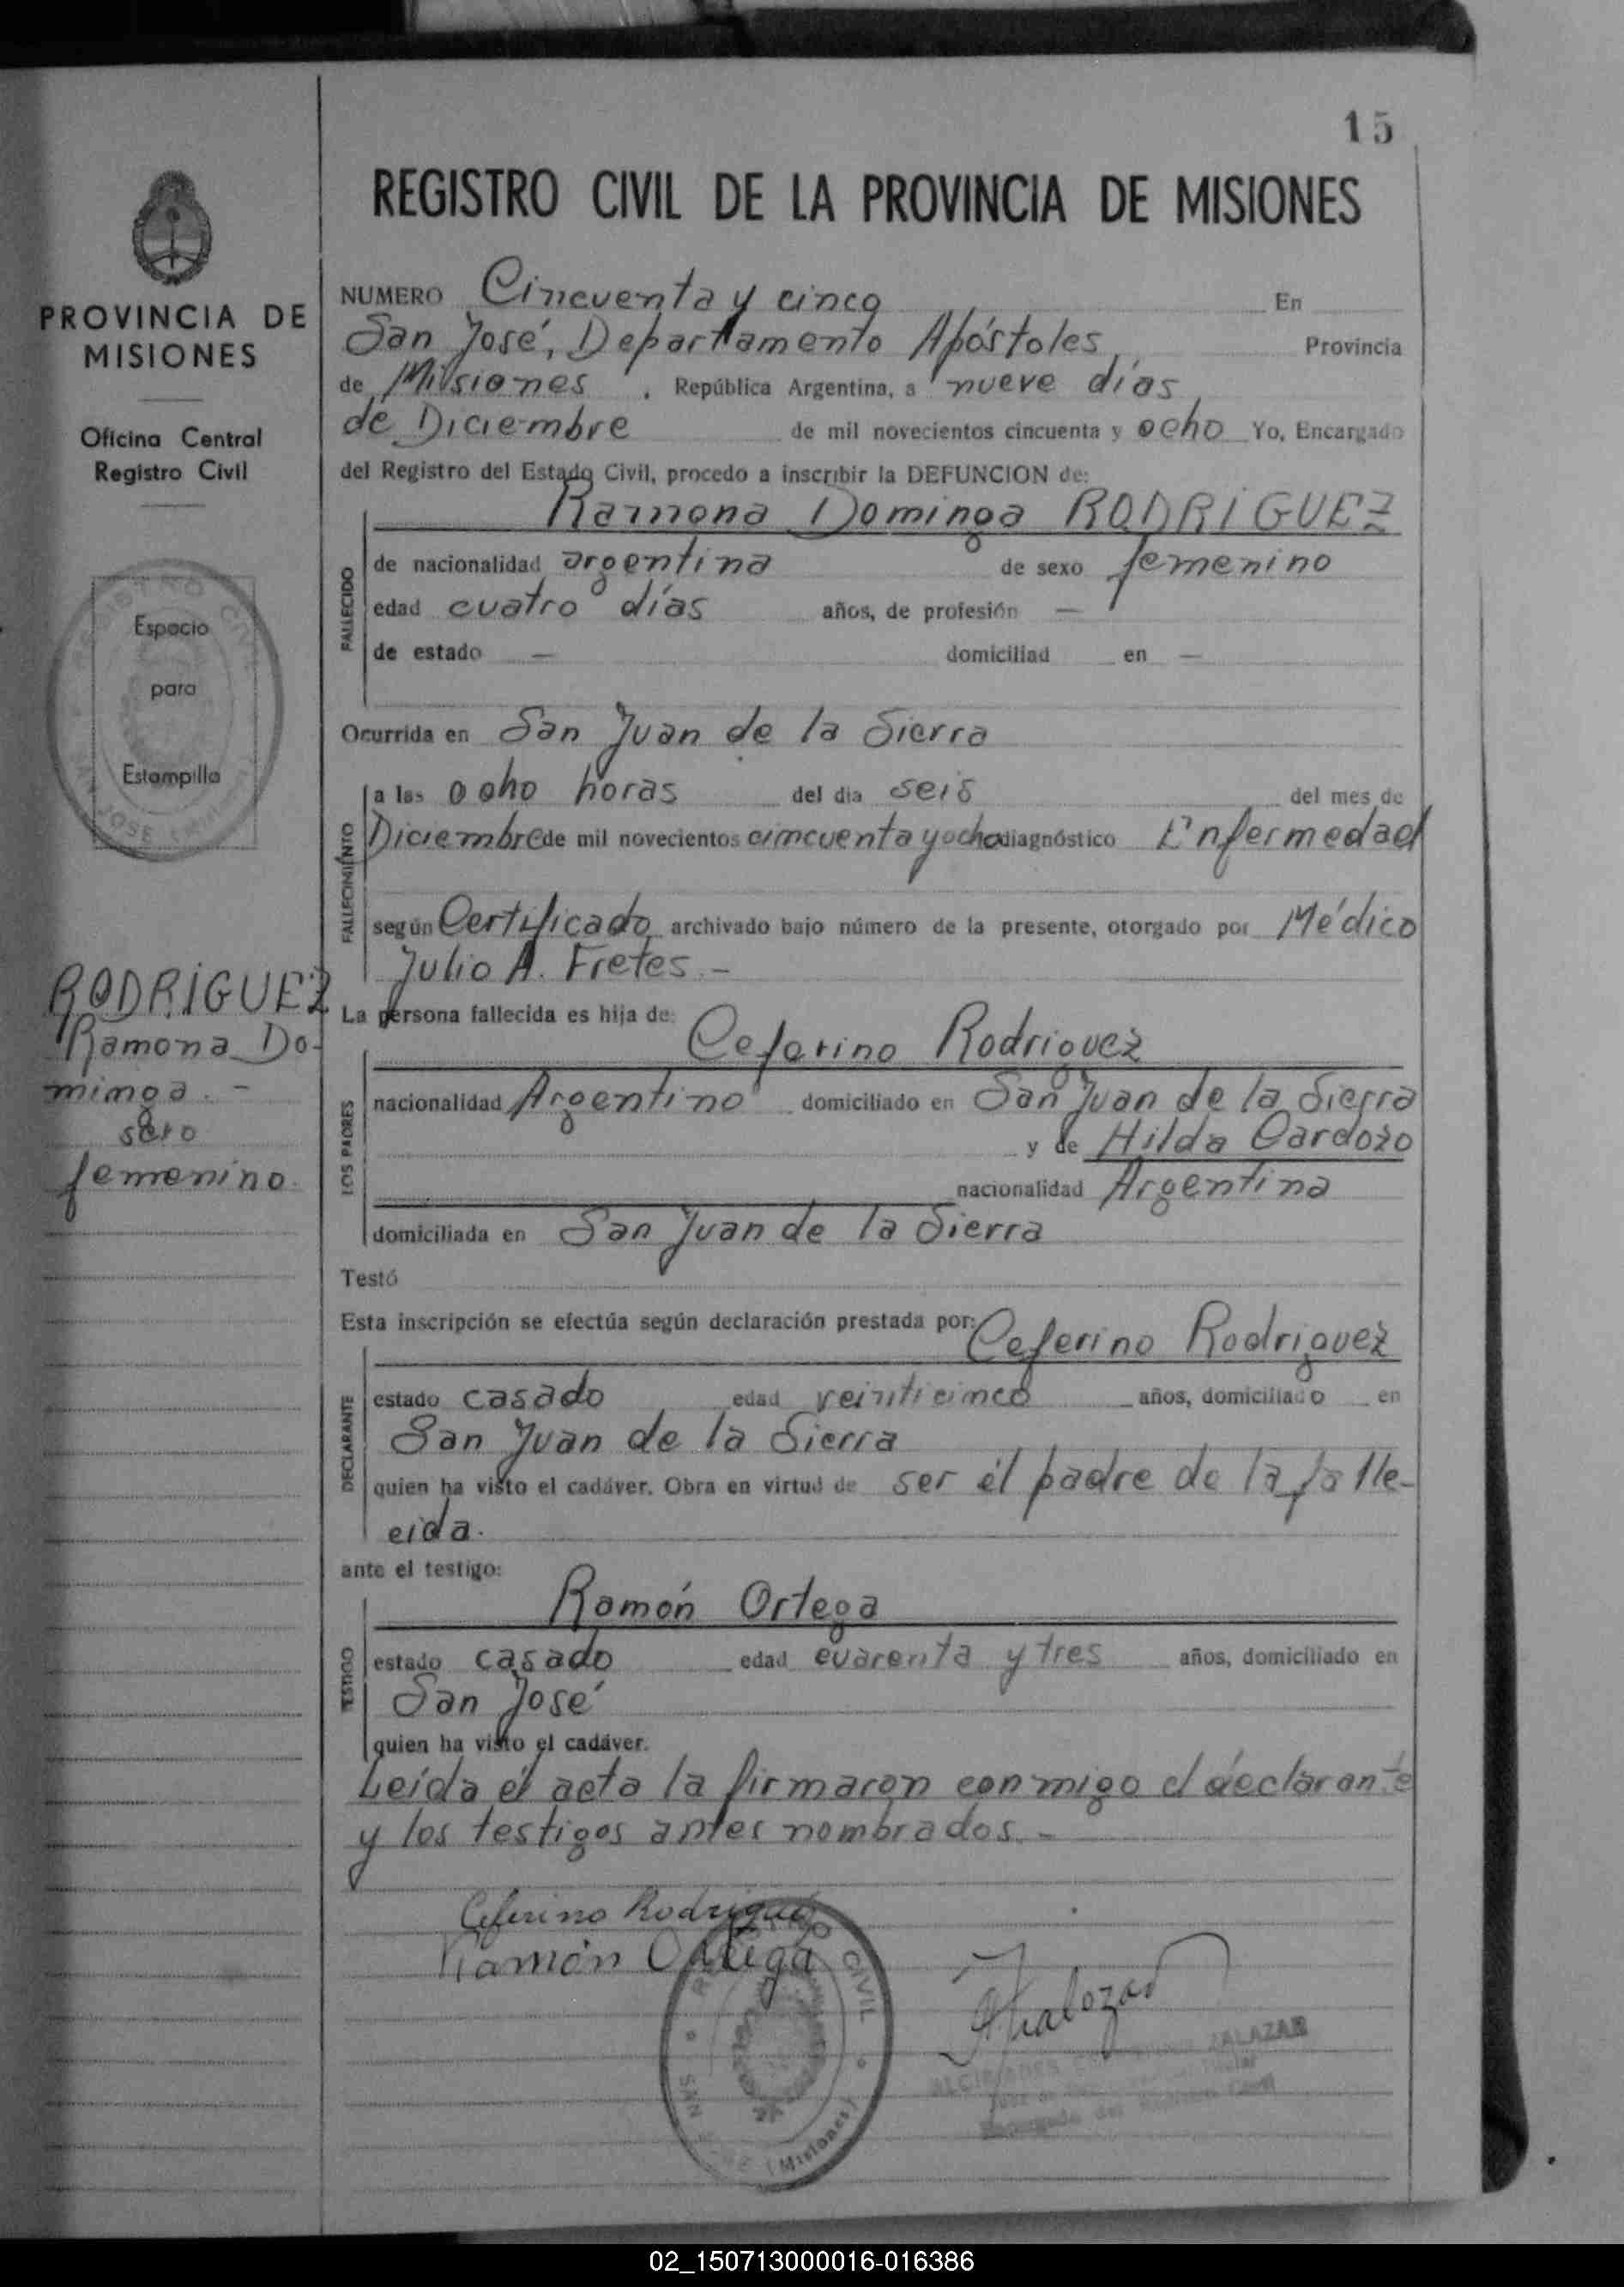 15
REGISTRO CIVIL DE LA PROVINCIA DE MISIONES
PROVINCIA DE
MISIONES
Oficina Central
Registro Civil
Espacio
para
Estampilla
RODRIGUEZ
Ramona Do-
minga. -
sexo
femenino.
NUMERO Cincuenta y cinco En
San José, Departamento Apóstoles, Provincia
de Misiones, República Argentina, a nueve días
de Diciembre de mil novecientos cincuenta y ocho Yo, Encargado
del Registro del Estado Civil, procedo a inscribir la DEFUNCION de:
Ramona Dominga RODRIGUEZ
FALLECIDO
de nacionalidad argentina de sexo femenino
edad cuatro días años, de profesión —
de estado — domiciliad en —
Ocurrida en San Juan de la Sierra
FALLECIMIENTO
a las ocho horas del día seis del mes de
Diciembre de mil novecientos cincuenta y ocho diagnóstico Enfermedad
según Certificado archivado bajo número de la presente, otorgado por Médico
Julio A. Fretes. -
La persona fallecida es hija de:
Ceferino Rodriguez
LOS PADRES
nacionalidad Argentino domiciliado en San Juan de la Sierra
y de Hilda Cardozo
nacionalidad Argentina
domiciliada en San Juan de la Sierra
Testó
Esta inscripción se efectúa según declaración prestada por:
Ceferino Rodriguez
DECLARANTE
estado casado edad veinticinco años, domiciliado en
San Juan de la Sierra
quien ha visto el cadáver. Obra en virtud de ser él padre de la falle-
cida.
ante el testigo:
Ramón Ortega
TESTIGO
estado casado edad cuarenta y tres años, domiciliado en
San José
quien ha visto el cadáver.
Leída el acta la firmaron conmigo el declarante
y los testigos antes nombrados. -
Ceferino Rodriguez
Ramón Ortega
CIVIL
SAN
(Misiones)
ZALAZAR
02_150713000016-016386